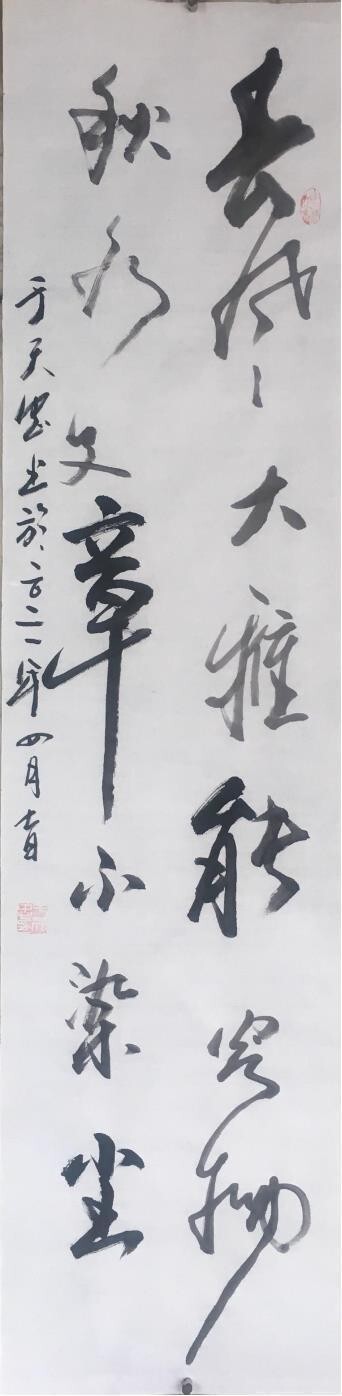 春风大雅能容物
秋水文章不染尘
于天 书於二〇二一年四月